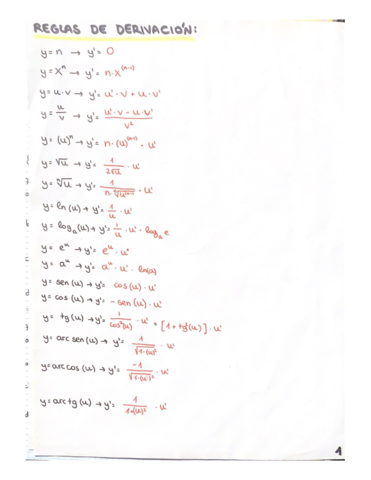 REGLAS DE DERIVACIÓN:
y = n → y' = 0
y = xⁿ → y' = n·x⁽ⁿ⁻¹⁾
y = u·v → y' = u'·v + u·v'
y = u/v → y' = (u'·v - u·v')/v²
y = (u)ⁿ → y' = n·(u)⁽ⁿ⁻¹⁾·u'
y = √u → y' = 1/(2√u)·u'
y = ⁿ√u → y' = 1/(n·ⁿ√uⁿ⁻¹)·u'
y = ln (u) → y' = 1/u·u'
y = logₐ(u) → y' = 1/u·u'·logₐ e
y = eᵘ → y' = eᵘ·u'
y = aᵘ → y' = aᵘ·u'·ln(a)
y = sen (u) → y' = cos(u)·u'
y = cos (u) → y' = -sen(u)·u'
y = tg (u) → y' = 1/cos²(u)·u' = [1+tg²(u)]·u'
y = arc sen (u) → y' = 1/√(1-(u)²)·u'
y = arc cos (u) → y' = -1/√(1-(u)²)·u'
y = arc tg (u) → y' = 1/(1+(u)²)·u'
1